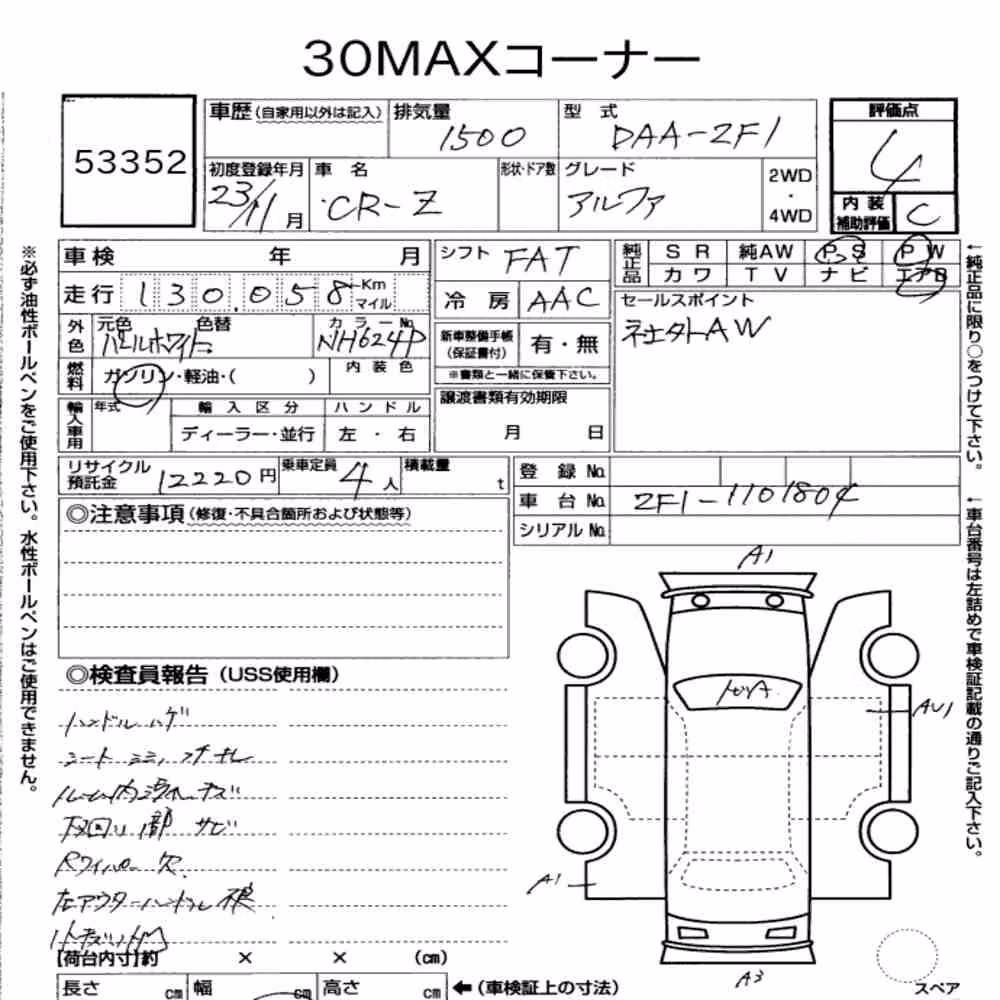 30MAXコーナー
53352
車歴(自家用以外は記入)
排気量
1500
型 式
DAA-ZF1
評価点
4
内 装
補助評価
C
初度登録年月
23/11月
車 名
CR-Z
形状・ドア数
グレード
アルファ
2WD
・
4WD
車検 年 月
シフト
FAT
純正品
SR 純AW P.S P W
カワ TV ナビ エアB
走行 130,058 Km
マイル
冷 房
AAC
セールスポイント
外色
元色 色替
パールホワイト
カラーNo.
NH624P
新車整備手帳
(保証書付)
有・無
※書類と一緒に保管下さい。
燃料
ガソリン・軽油・( )
内 装 色
譲渡書類有効期限
月 日
輸入車用
年式
輸 入 区 分
ハ ン ド ル
ディーラー・並行
左 ・ 右
リサイクル
預託金
12220円
乗車定員
4人
積載量
t
登 録 No.
車 台 No.
ZF1-1101804
シリアル No.
◎注意事項(修復・不具合箇所および状態等)
◎検査員報告(USS使用欄)
ハンドルハゲ
ルーム内汚れキズ
下回り一部サビ
Rワイパー欠
左アウターハンドル
A1
AU1
A1
A3
【荷台内寸】約 × × (cm)
長さ cm
幅 cm
高さ cm
←(車検証上の寸法)
スペア
※必ず油性ボールペンをご使用下さい。水性ボールペンはご使用できません。
←純正品に限り○をつけて下さい。
←車台番号は左詰めで車検証記載の通りご記入下さい。